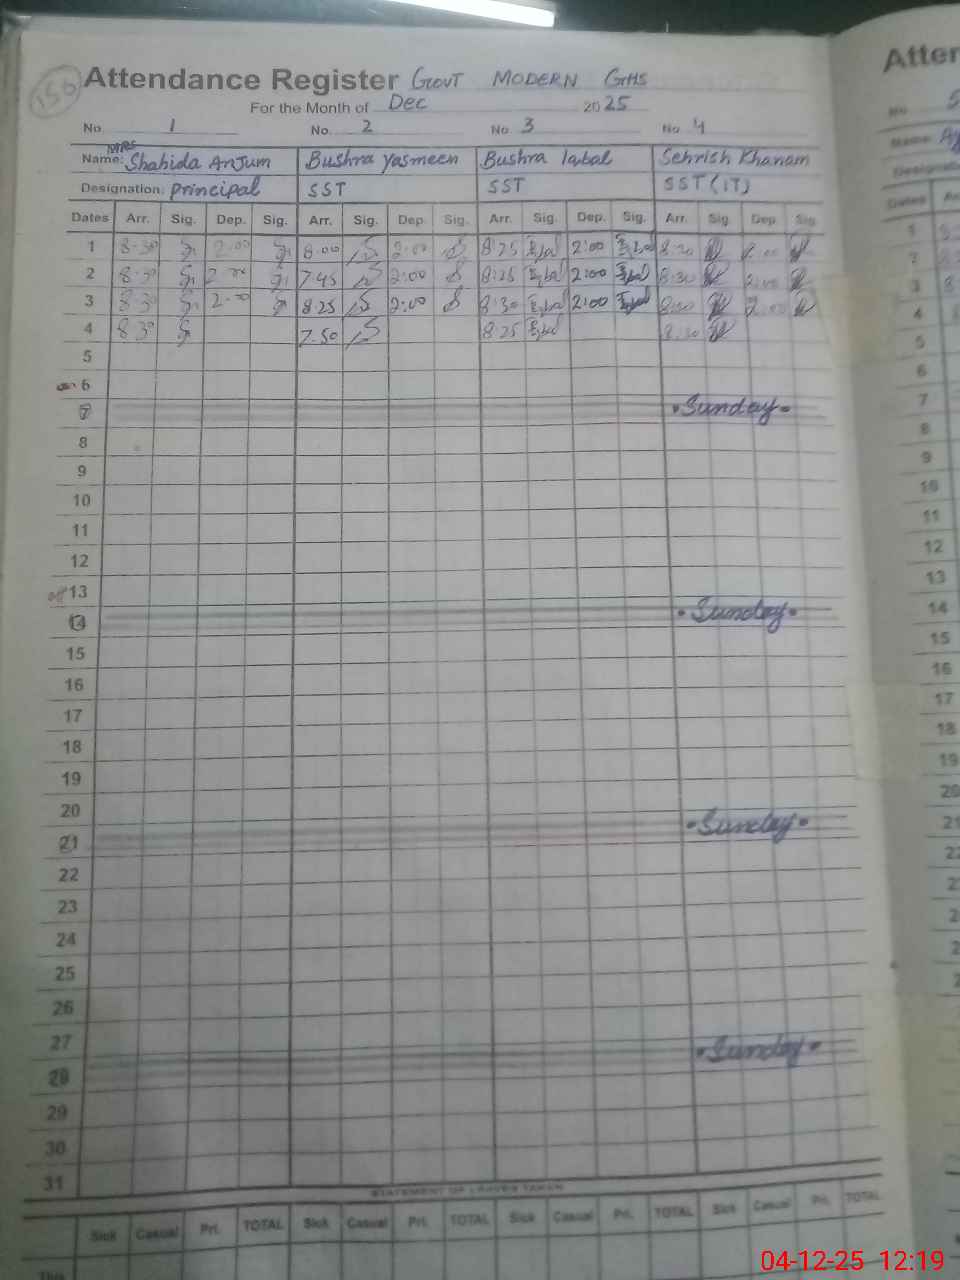 150
Attendance Register Govt MODERN GHS
For the Month of Dec 2025
No. 1 No. 2 No. 3 No. 4
Name: MRS Shahida Anjum Bushra Yasmeen Bushra Iqbal Sehrish Khanam
Designation: Principal SST SST SST (IT)
Dates Arr. Sig. Dep. Sig. Arr. Sig. Dep. Sig. Arr. Sig. Dep. Sig. Arr. Sig. Dep. Sig.
1 8-30 2:00 8:00 2:00 8:25 2:00 8:30 2:00
2 8-30 2:00 7:45 2:00 8:25 2:00 8:30 2:00
3 8-30 2:00 8:25 2:00 8:30 2:00 8:30 2:00
4 8-30 7:50 8:25 8:30
5
6
7 Sunday
8
9
10
11
12
off 13
14 Sunday
15
16
17
18
19
20
21 Sunday
22
23
24
25
26
27
28 Sunday
29
30
31
STATEMENT OF LEAVES TAKEN
Sick Casual Pri. TOTAL Sick Casual Pri. TOTAL Sick Casual Pri. TOTAL Sick Casual Pri. TOTAL
This
Atten
No.
Name:
Designation
Dates
1
2
3
4
5
6
7
8
9
10
11
12
13
14
15
16
17
18
19
20
21
22
04-12-25 12:19